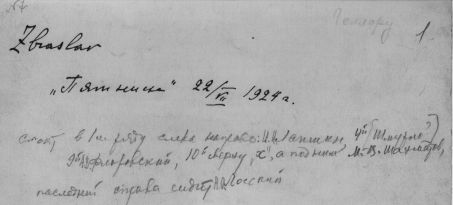 Zbraslav
1.
„Пятница" 22/VII 1924 г.
стоят в 1м ряду слева направо: И.И. Лапшин, 4й (Шмурло?)
9й Флоровский, 10й сверху „х", а под ним М.В. Шахматов,
последний справа сидит Н.О. Лосский